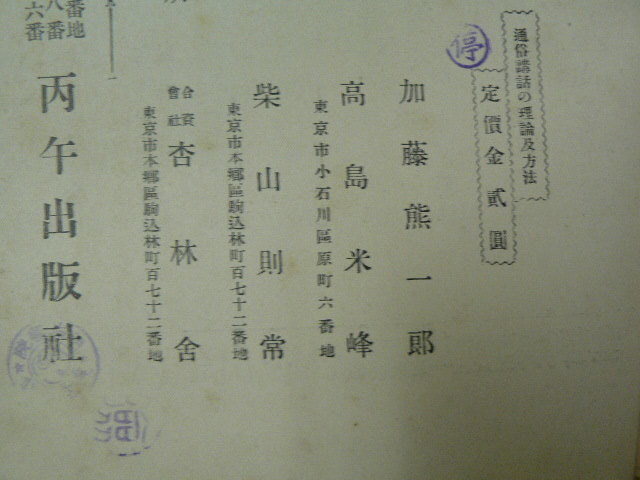 通俗講話の理論及方法
定價金貳圓
停
加藤熊一郎
高島米峰
東京市小石川區原町六番地
柴山則常
東京市本郷區駒込林町百七十二番地
合資會社
杏林舍
東京市本郷區駒込林町百七十二番地
番地
八番
六番
丙午出版社